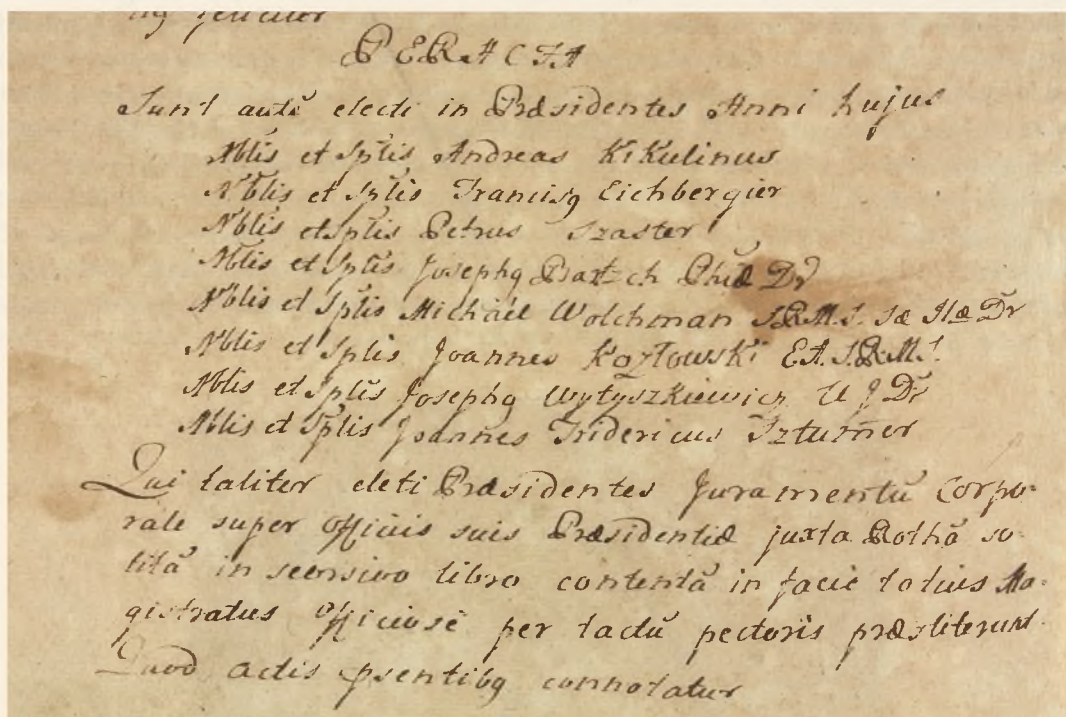 PERACTA
Sunt autē electi in Præsidentes Anni hujus
Nblis et Spłis Andreas KiKulinus
Nblis et Spłis Francisq Eichbergier
Nblis et Spłis Petrus Szaster
Nblis et Spłis Josephq Bartsch Phiæ Dr
Nblis et Spłis Michaël Wolchman S.R.M.S. Sæ Dr
Nblis et Spłis Joannes Kozłowski S.R.M.S.
Nblis et Spłis Josephq Wytyszkiewicz U J Dr
Nblis et Spłis Joannes Fridericus Szturm̄er
Qui taliter eleti Præsidentes Juramentū Corpo-
rale super Officiis suis Præsidentiæ juxta Rothā so-
litā in seorsivo libro contentā in facie totius Ma-
gistratus Officiosè per tactū pectoris præstiterunt.
Quod actis psentibq connotatur